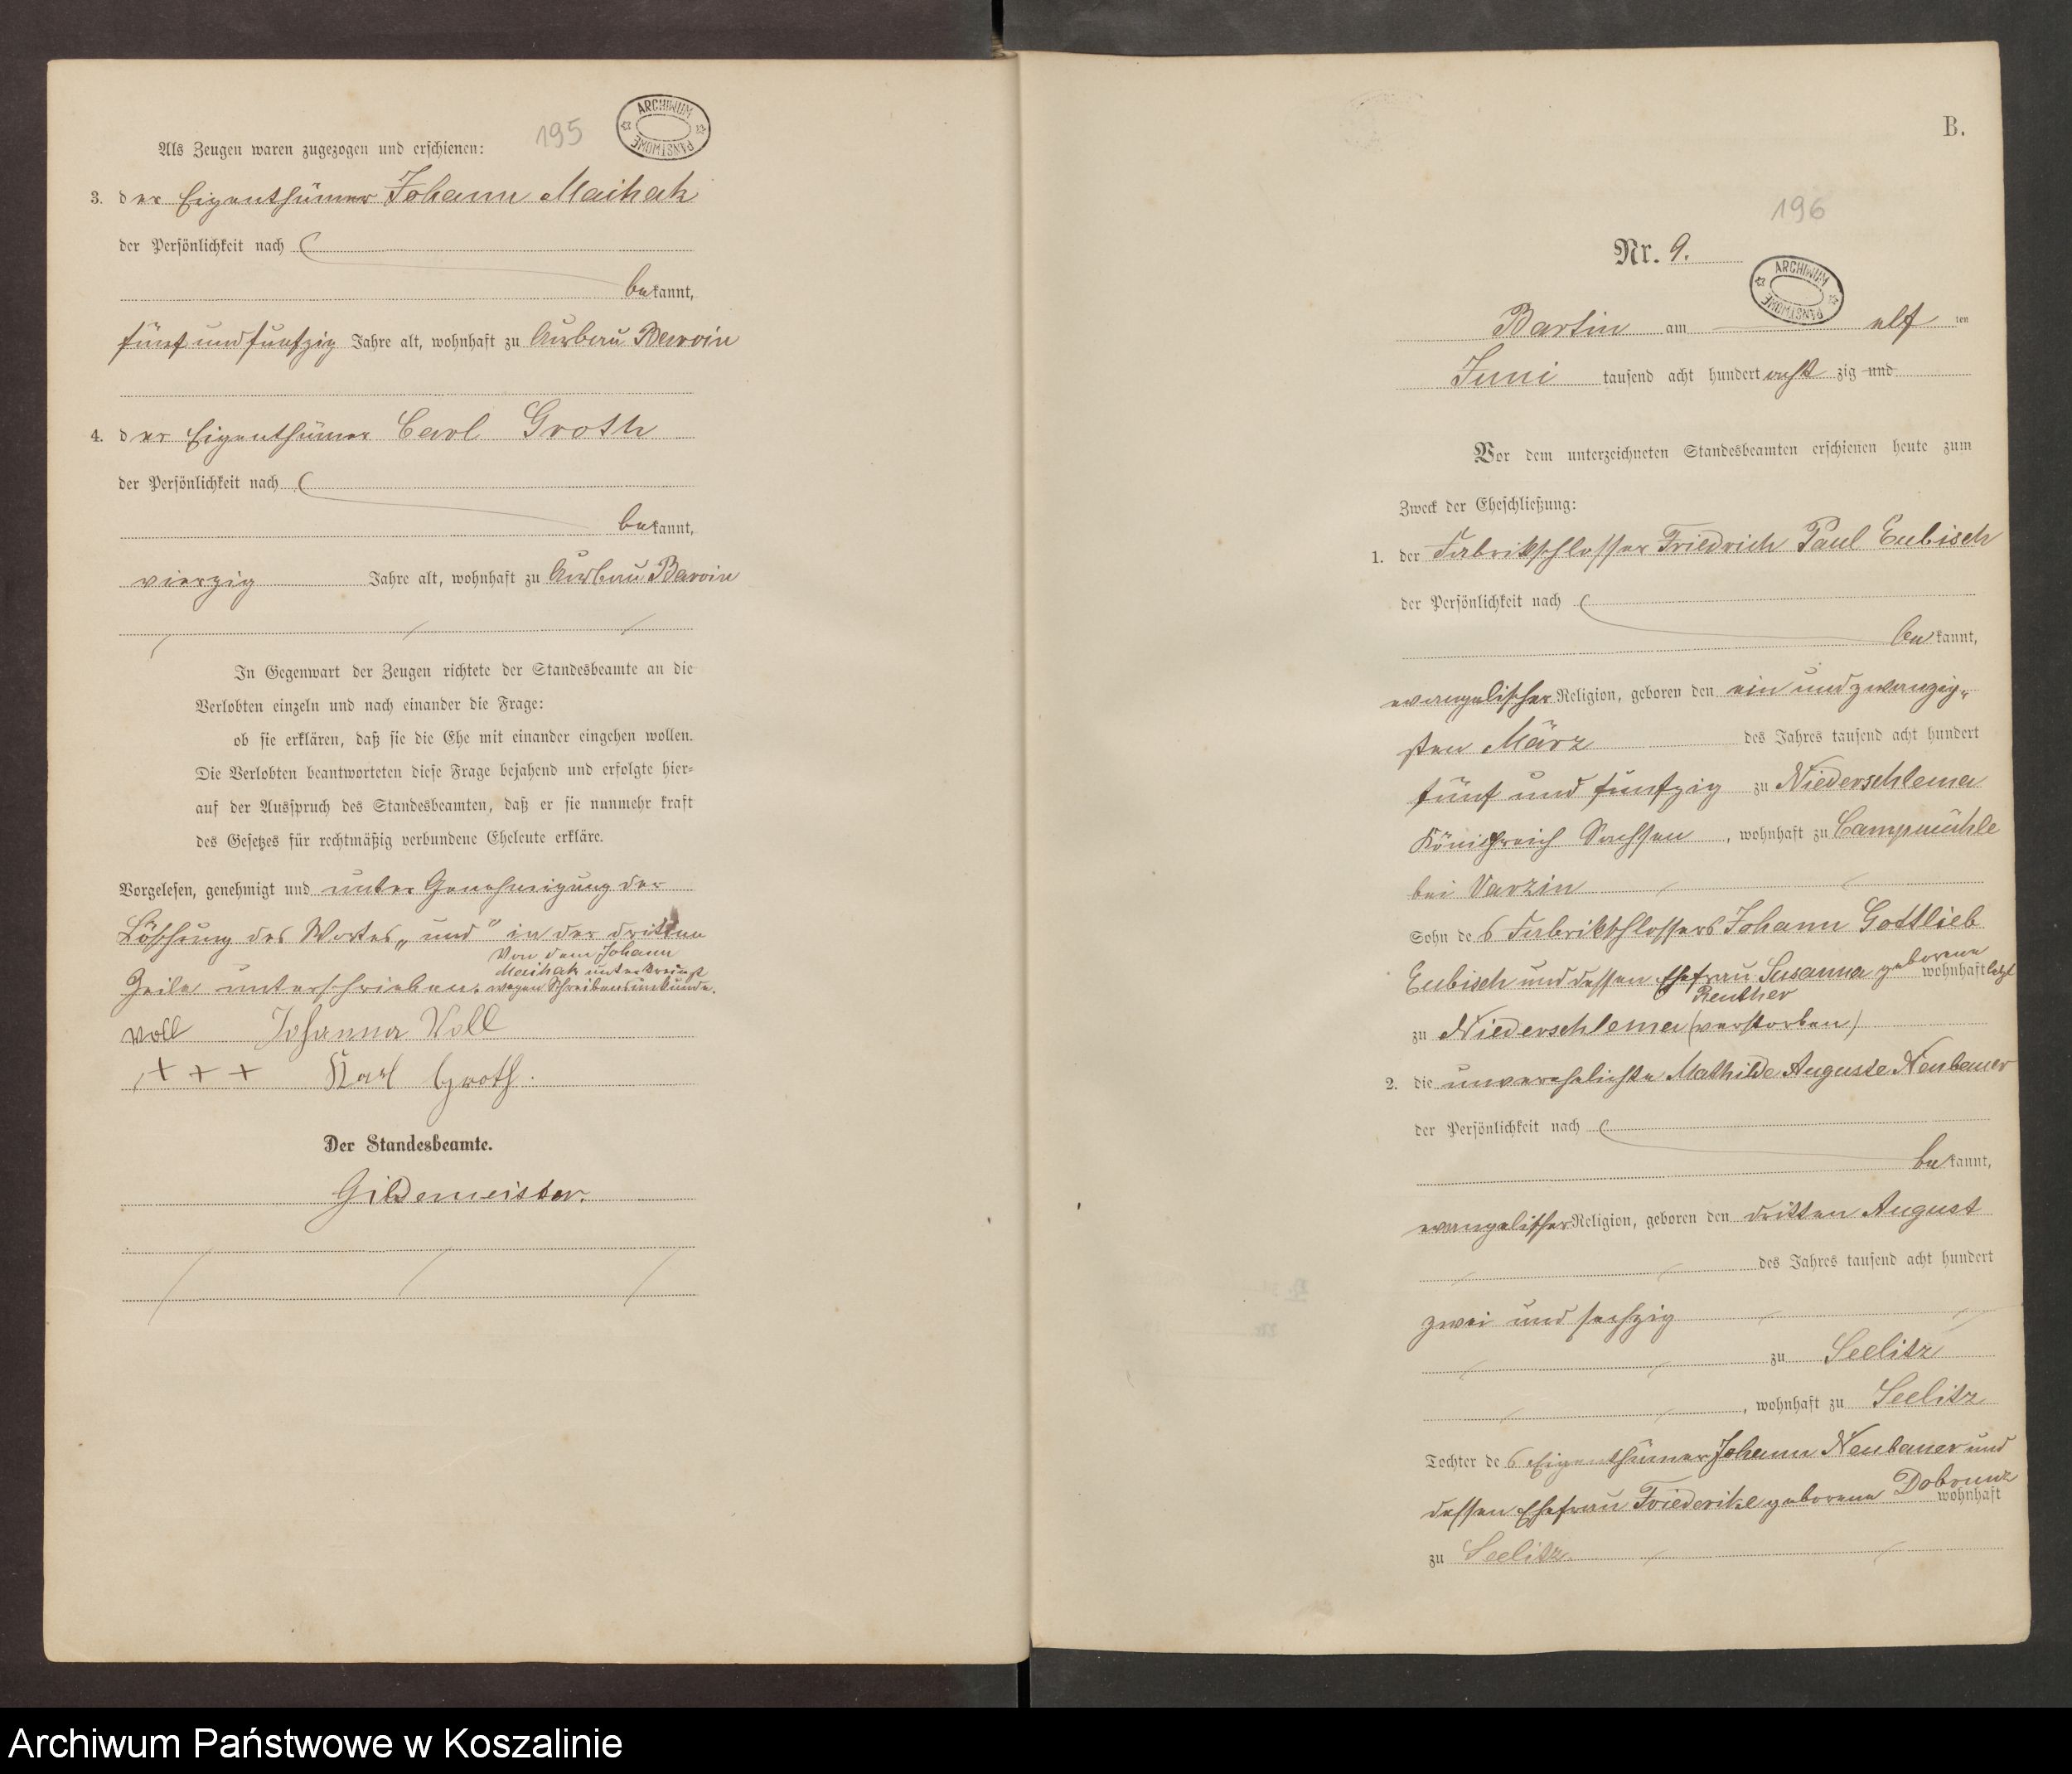 195
ARCHIWUM PAŃSTWOWE
Als Zeugen waren zugezogen und erschienen:
3. der Eigenthümer Johann Maihak
der Persönlichkeit nach
bekannt,
fünf und funfzig Jahre alt, wohnhaft zu Ausbau Barvin
4. der Eigenthümer Carl Groth
der Persönlichkeit nach
bekannt,
vierzig Jahre alt, wohnhaft zu Ausbau Barvin
In Gegenwart der Zeugen richtete der Standesbeamte an die
Verlobten einzeln und nach einander die Frage:
ob sie erklären, daß sie die Ehe mit einander eingehen wollen.
Die Verlobten beantworteten diese Frage bejahend und erfolgte hier-
auf der Ausspruch des Standesbeamten, daß er sie nunmehr kraft
des Gesetzes für rechtmäßig verbundene Eheleute erkläre.
Vorgelesen, genehmigt und unter Genehmigung der
Löschung des Wortes „und" in der dritten
Von dem Johann
Maihak unterkreuzt
Zeile unterschrieben. wegen Schreibensunkunde.
Voll Johanna Voll
+ + + Karl Groth.
Der Standesbeamte.
Gildemeister.
B.
196
Nr. 9.
ARCHIWUM PAŃSTWOWE
Bartin am elf ten
Juni tausend acht hundert acht zig und
Vor dem unterzeichneten Standesbeamten erschienen heute zum
Zweck der Eheschließung:
1. der Fabrikschlosser Friedrich Paul Eubisch
der Persönlichkeit nach
bekannt,
evangelischer Religion, geboren den ein und zwanzig-
sten März des Jahres tausend acht hundert
fünf und funfzig zu Niederschlema
Königreich Sachsen, wohnhaft zu Campmühle
bei Varzin
Sohn des Fabrikschlossers Johann Gottlieb
Eubisch und dessen Ehefrau Susanna geborene
Reuther wohnhaft letzt
zu Niederschlema (verstorben)
2. die unverehelichte Mathilde Auguste Neubauer
der Persönlichkeit nach
bekannt,
evangelischer Religion, geboren den dritten August
des Jahres tausend acht hundert
zwei und sechzig
zu Seelitz
, wohnhaft zu Seelitz
Tochter des Eigenthümer Johann Neubauer und
dessen Ehefrau Friederike geborene Dobrunz
wohnhaft
zu Seelitz
Archiwum Państwowe w Koszalinie